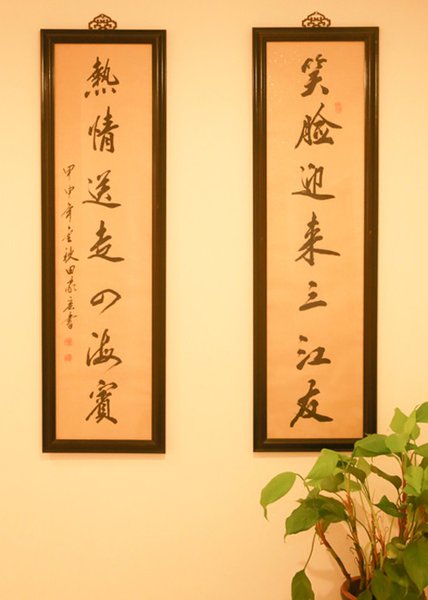 笑脸迎来三江友
熱情送走四海賓
甲申年金秋田家書